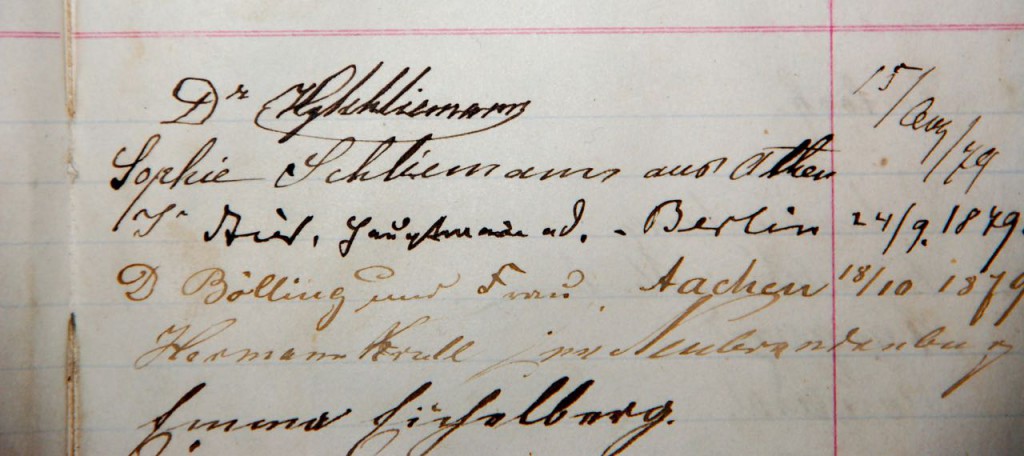 Dr Hy Schliemann 15/Aug/79
Sophie Schliemann aus Athen
Hauptmann a.D. - Berlin 24/9. 1879.
D Bölling und Frau, Aachen 18/10 1879
Hermann Krull jun Neubrandenburg
Emma Eichelberg.